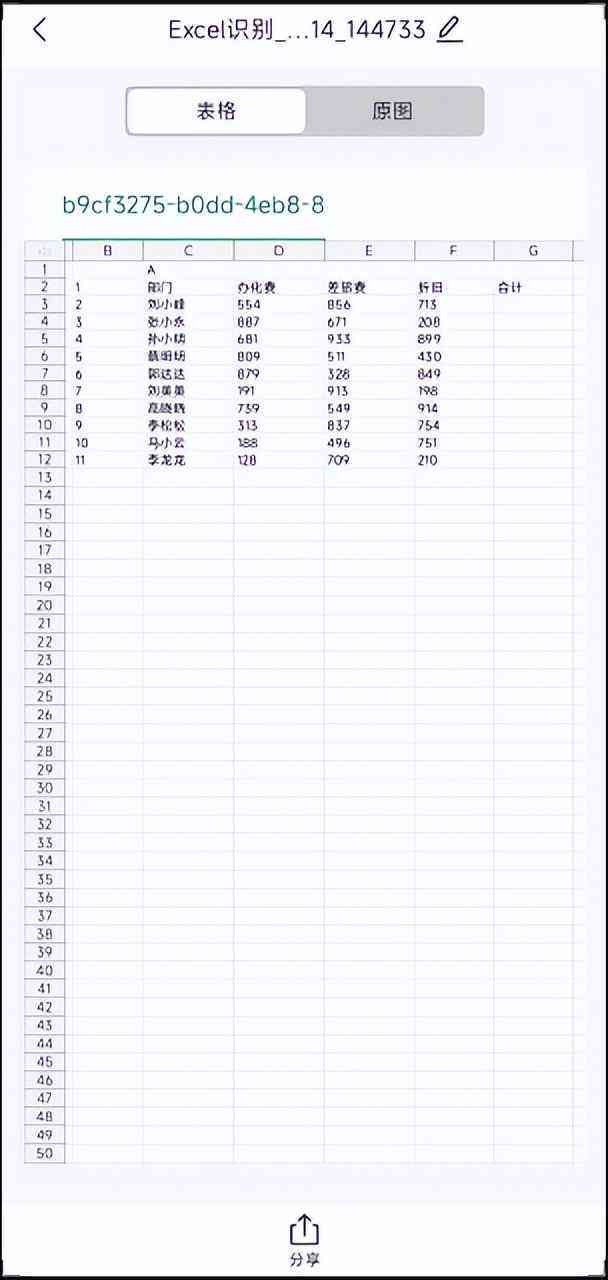 Excel识别_...14_144733
表格 原图
b9cf3275-b0dd-4eb8-8
B C D E F G
1 A
2 1 部门 办化费 差旅费 折旧 合计
3 2 刘小峰 554 856 713
4 3 张小永 887 671 208
5 4 孙小明 681 933 899
6 5 809 511 430
7 6 郭达达 879 328 849
8 7 刘英英 191 913 198
9 8 高晓晓 739 549 914
10 9 李松松 313 837 754
11 10 马小云 188 496 751
12 11 李龙龙 128 709 210
13
14
15
16
17
18
19
20
21
22
23
24
25
26
27
28
29
30
31
32
33
34
35
36
37
38
39
40
41
42
43
44
45
46
47
48
49
50
分享